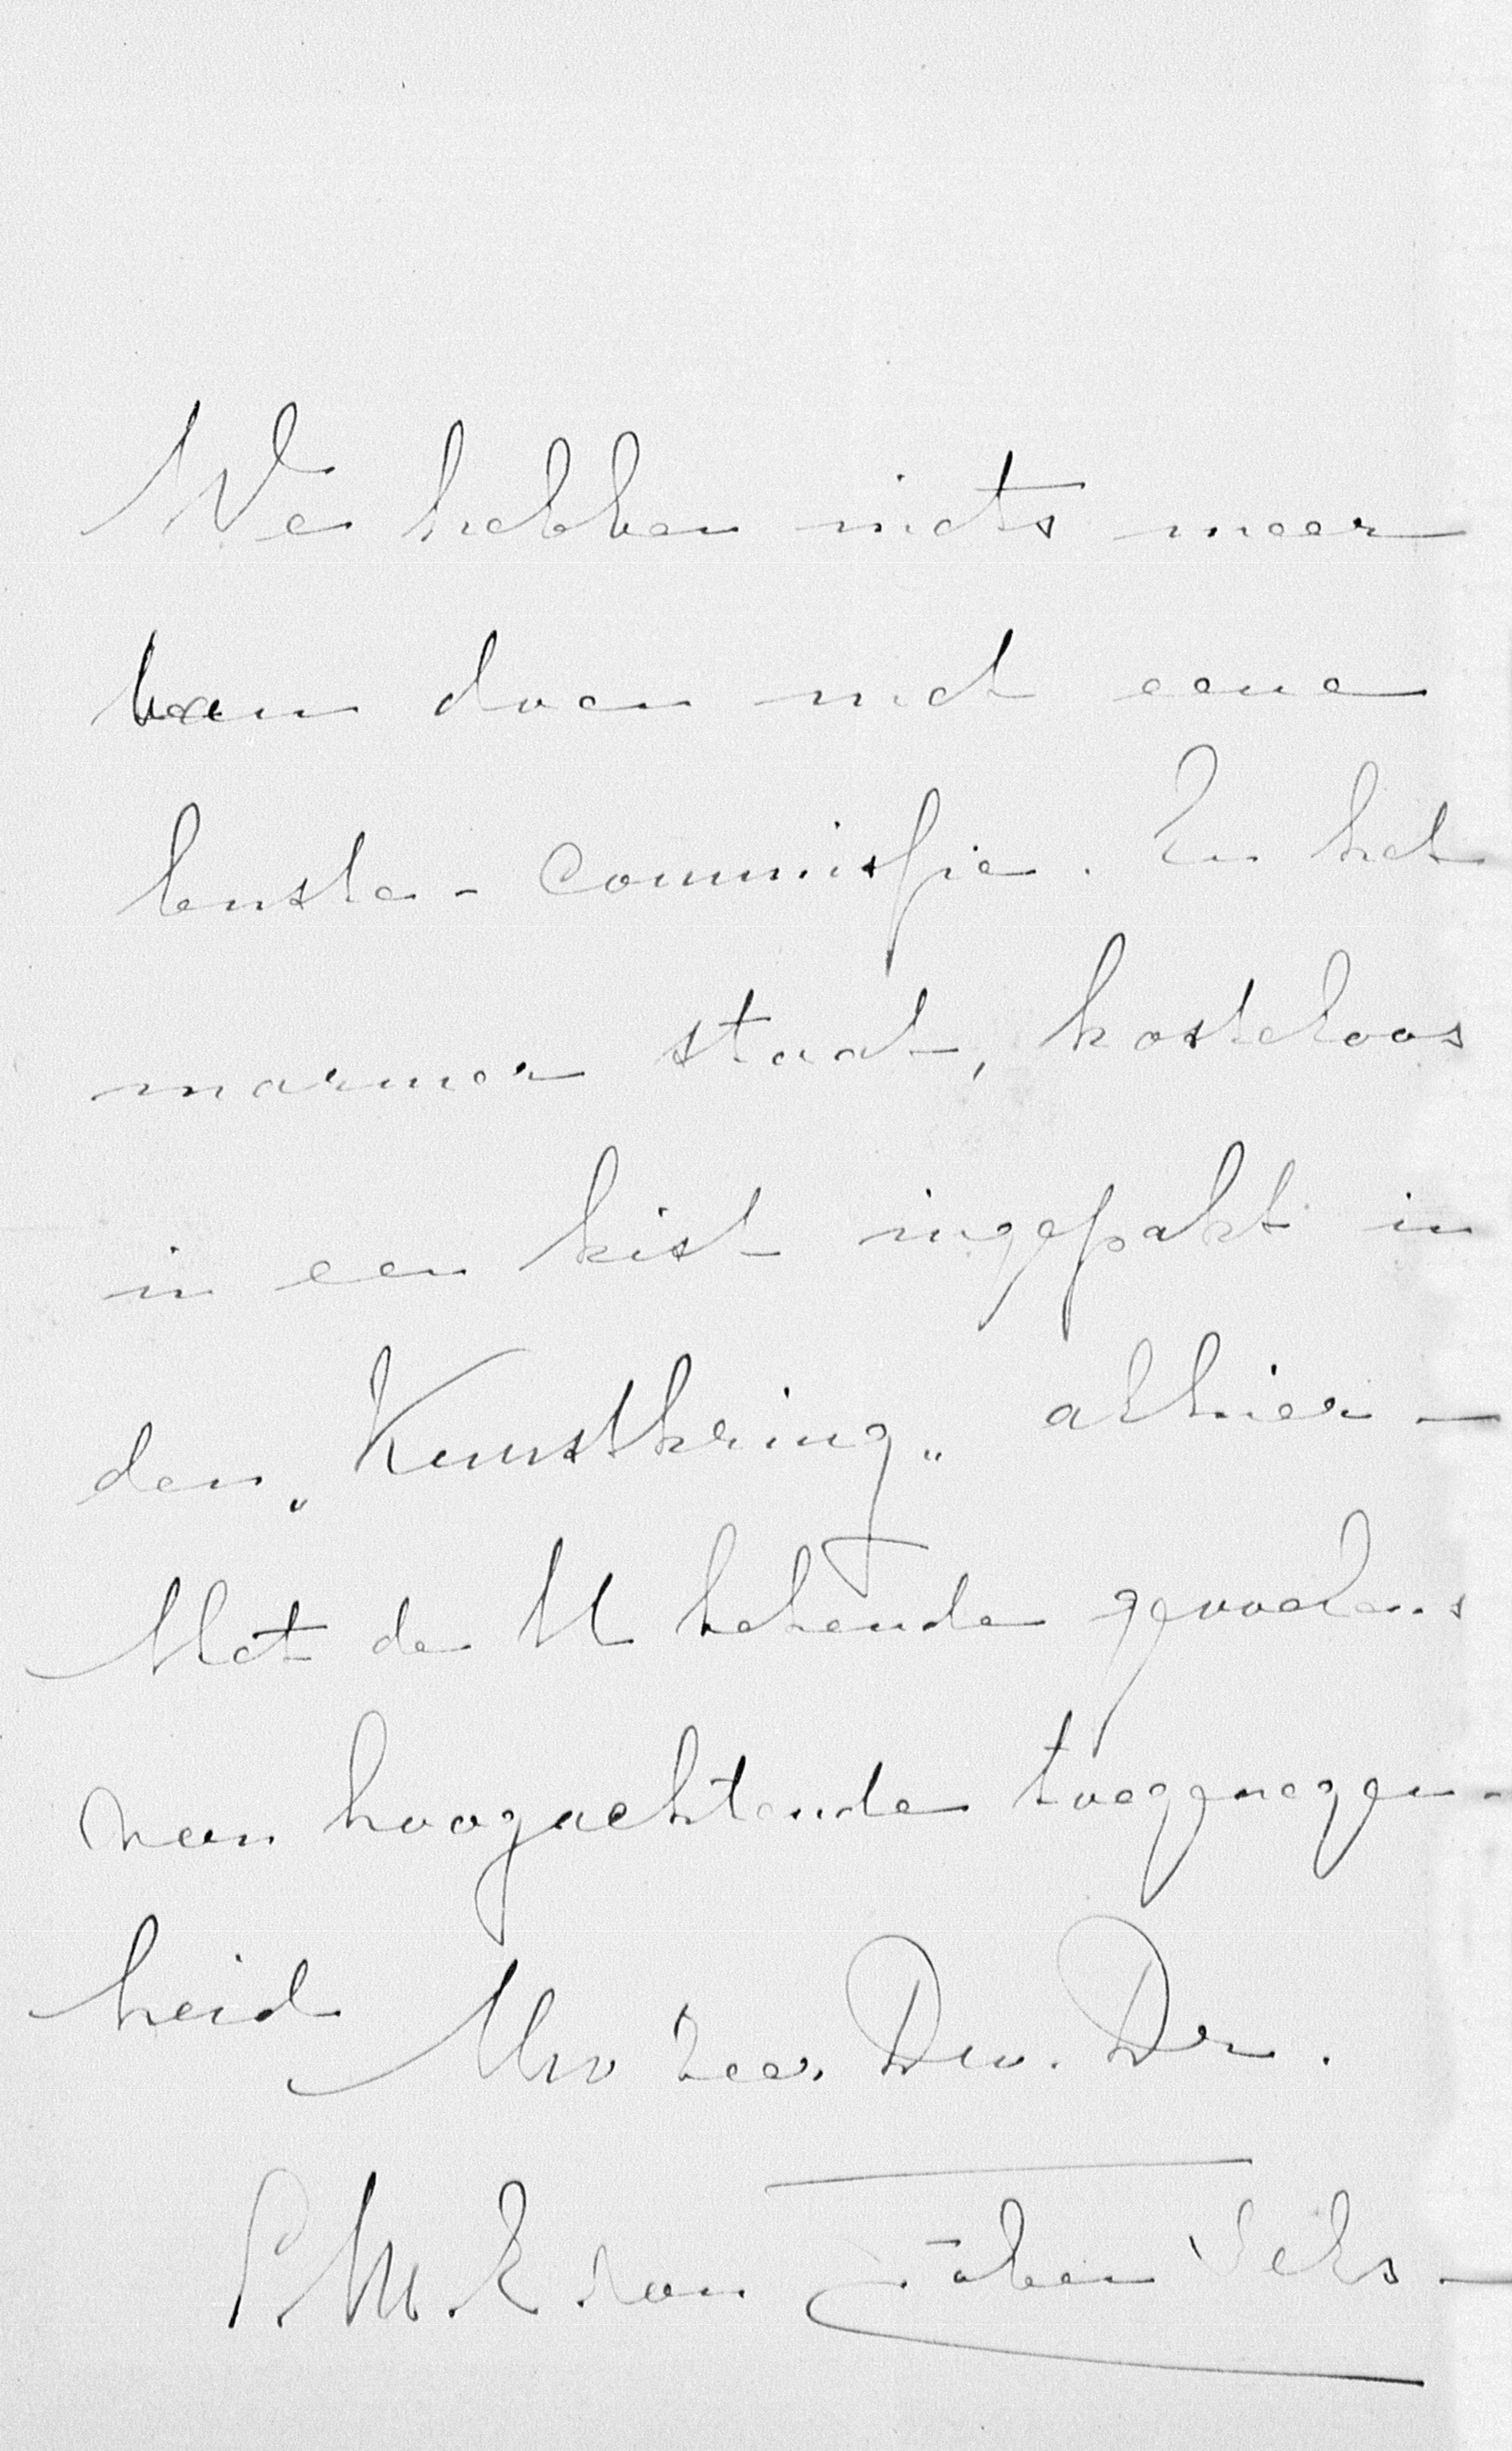 We hebben niets meer
doen met eene
buste-commissie. En het
marmer staat, kosteloos
in een kist ingepakt in
den „Kunstkring„ alhier —
Met de U bekende gevoelens
van hoogachtende toegenegen-
heid Uw Zeer Dw. Dr.
P. M. E. van